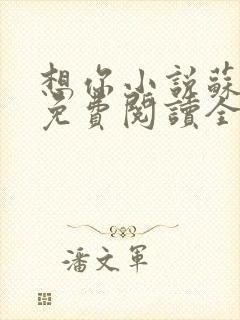 想你小說蘇
免費閱讀全
潘文軍